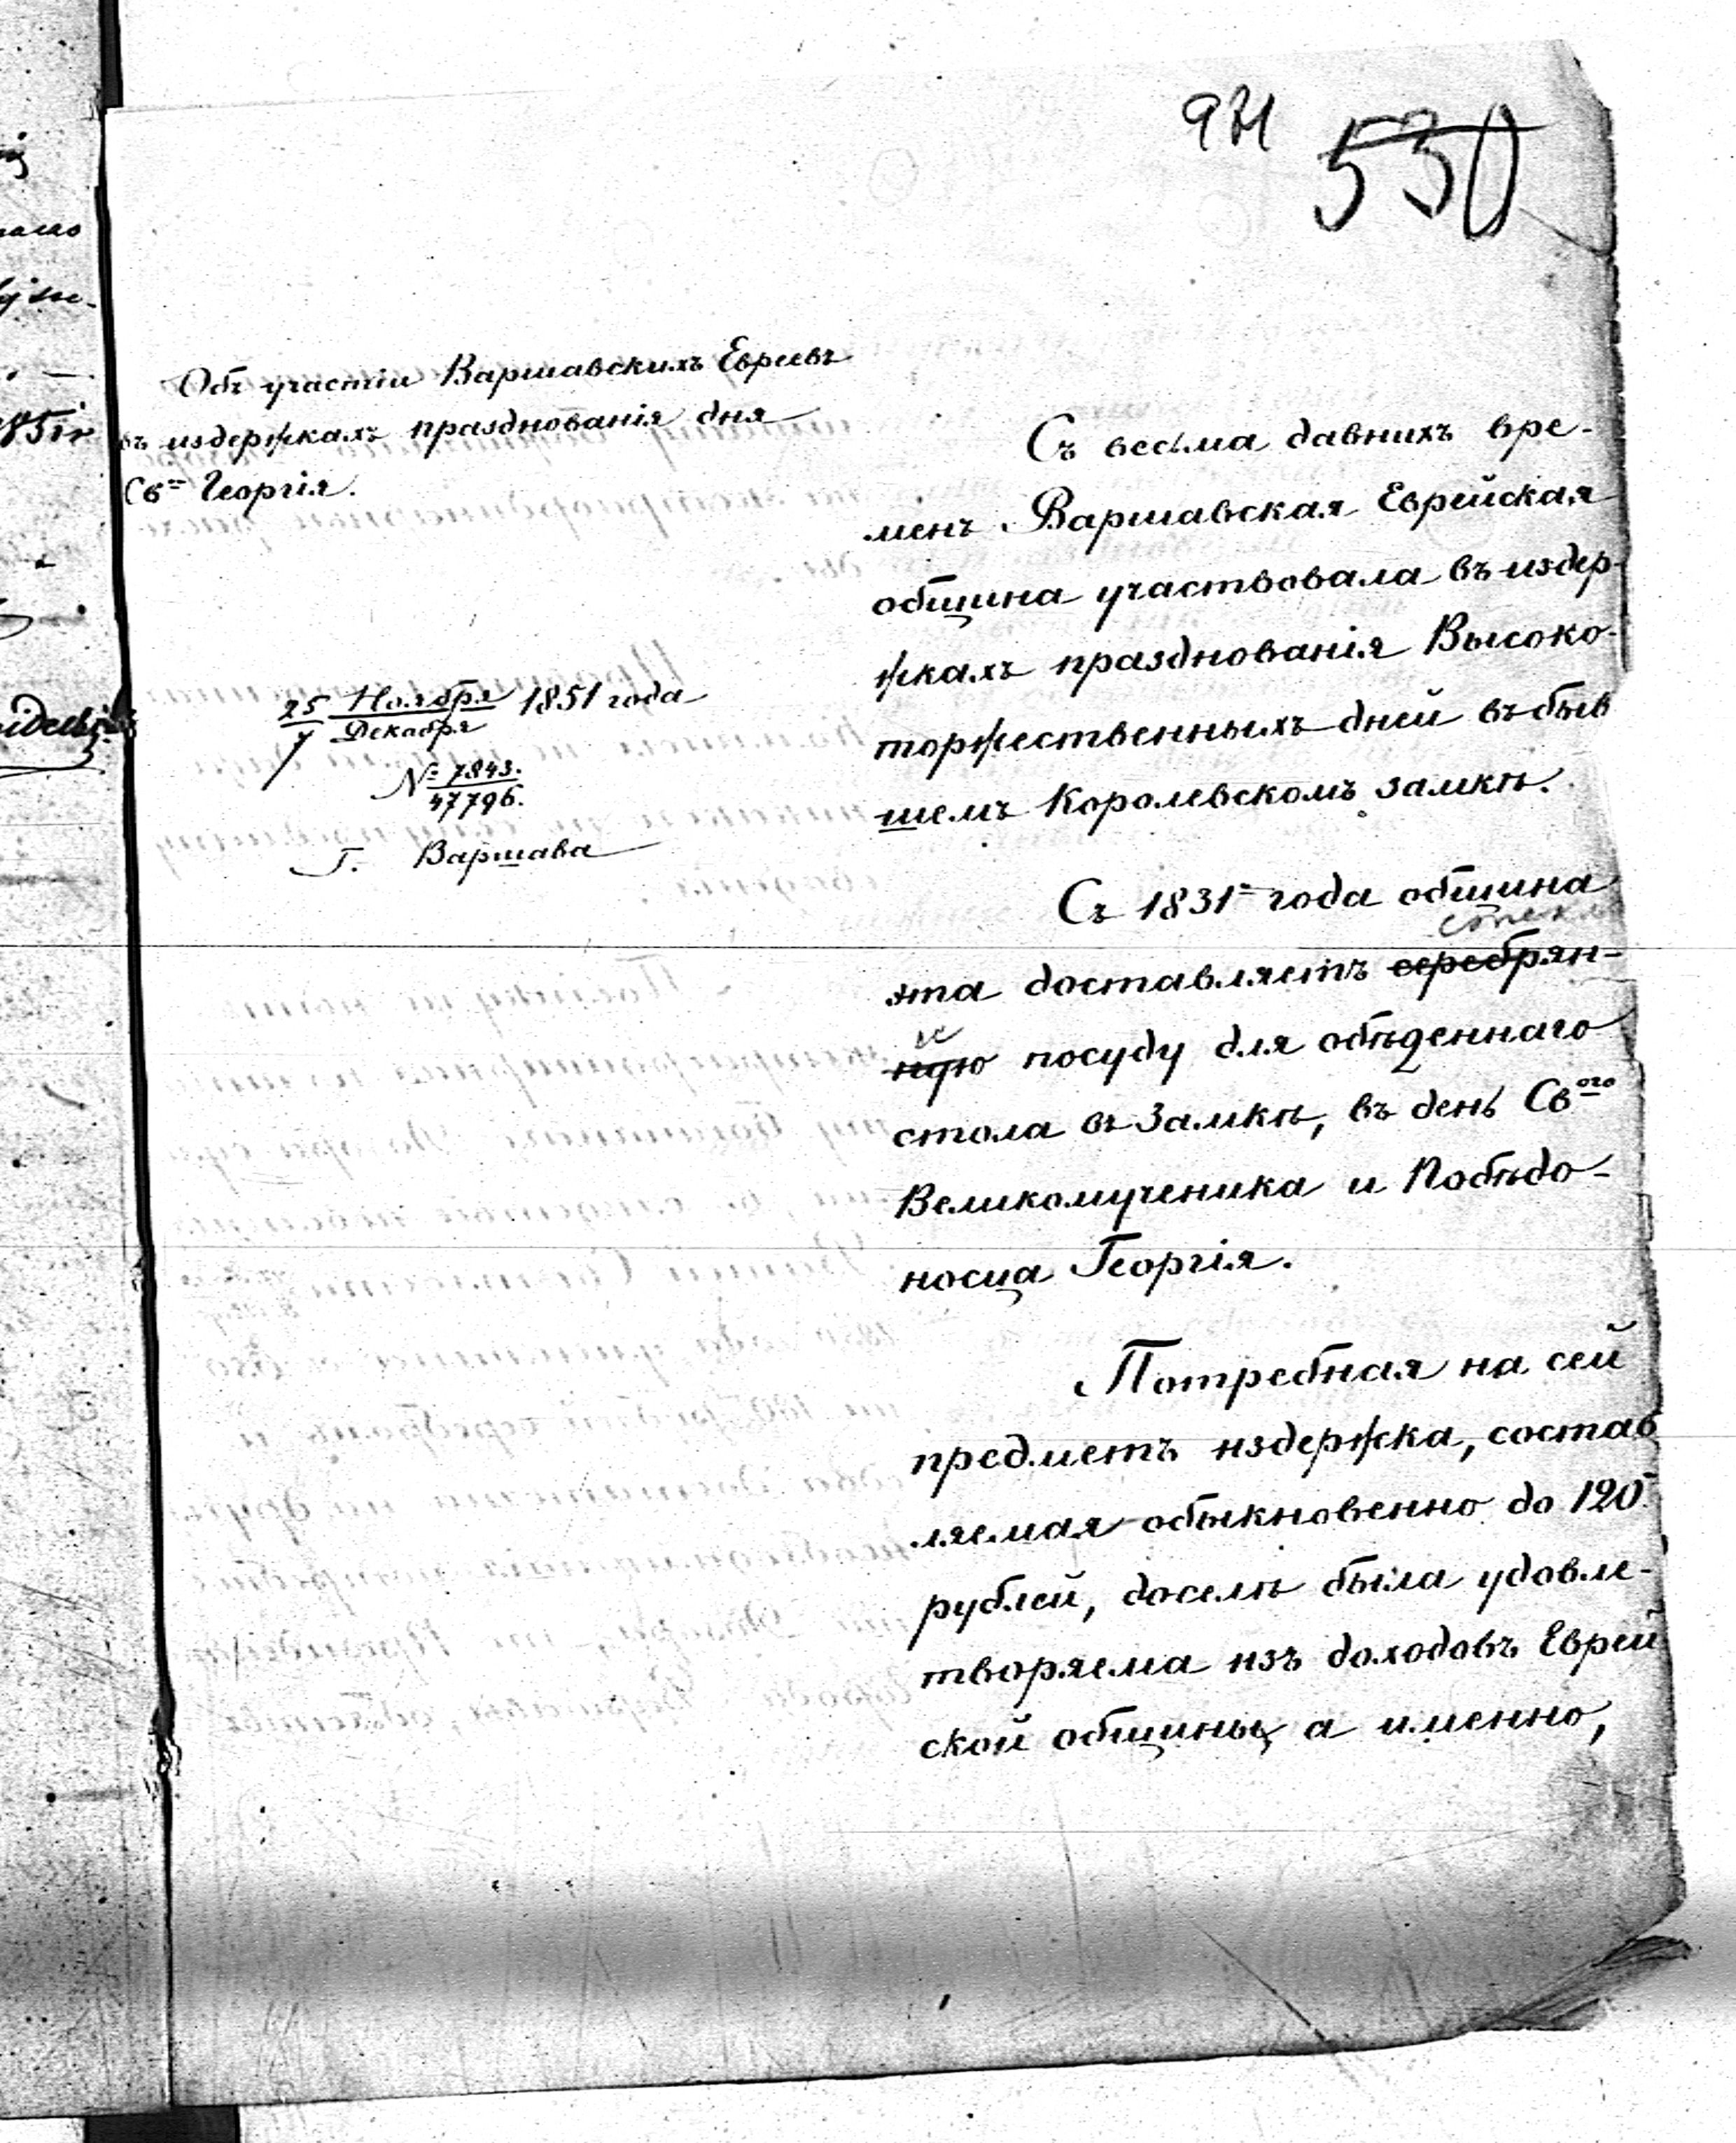 530
Объ участіи Варшавскихъ Евреевъ
въ издержкахъ празднованія дня
Св. Георгія.
25 Ноября 1851 года
7 Декабря
№ 7843.
47796.
Г. Варшава
Съ весьма давнихъ вре-
менъ Варшавская Еврейская
община участвовала въ издер-
жкахъ празднованія Высоко-
торжественныхъ дней въ быв
шемъ Королевскомъ замкѣ.
Съ 1831 года община
эта доставляетъ серебрян-
ную посуду для обѣденнаго
стола въ Замкѣ, въ день Св ого
Великомученика и Побѣдо-
носца Георгія.
Потребная на сей
предметъ издержка, состав
ляемая обыкновенно до 120
рублей, доселѣ была удовле-
творяема изъ доходовъ Еврей
ской общины, а именно,